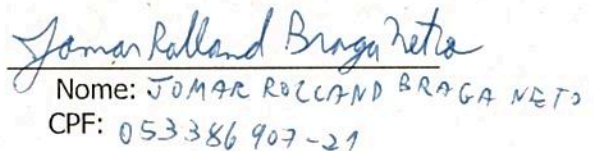 Jomar Rolland Braga Neto
Nome: JOMAR ROLLAND BRAGA NETO
CPF: 053386907-21